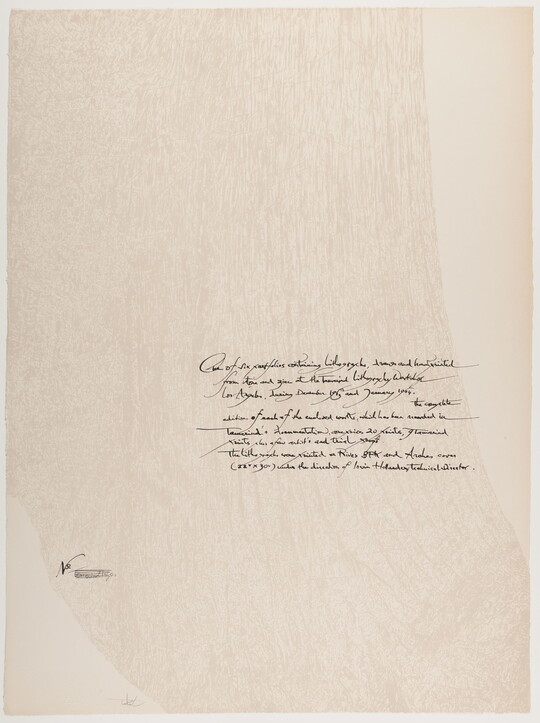 One of six portfolios containing lithographs, drawn and handprinted
from stone and zinc at the Tamarind Lithography Workshop
Los Angeles, during December 1963 and January 1964.
the complete
edition of each of the enclosed works, which has been recorded in
Tamarind's documentation, comprises 20 prints, 9 tamarind
prints plus artist's and trial proofs
The lithographs were printed on Rives BFK and Arches cover
(22" x 30") under the direction of Irwin Hollander, technical director.
No.